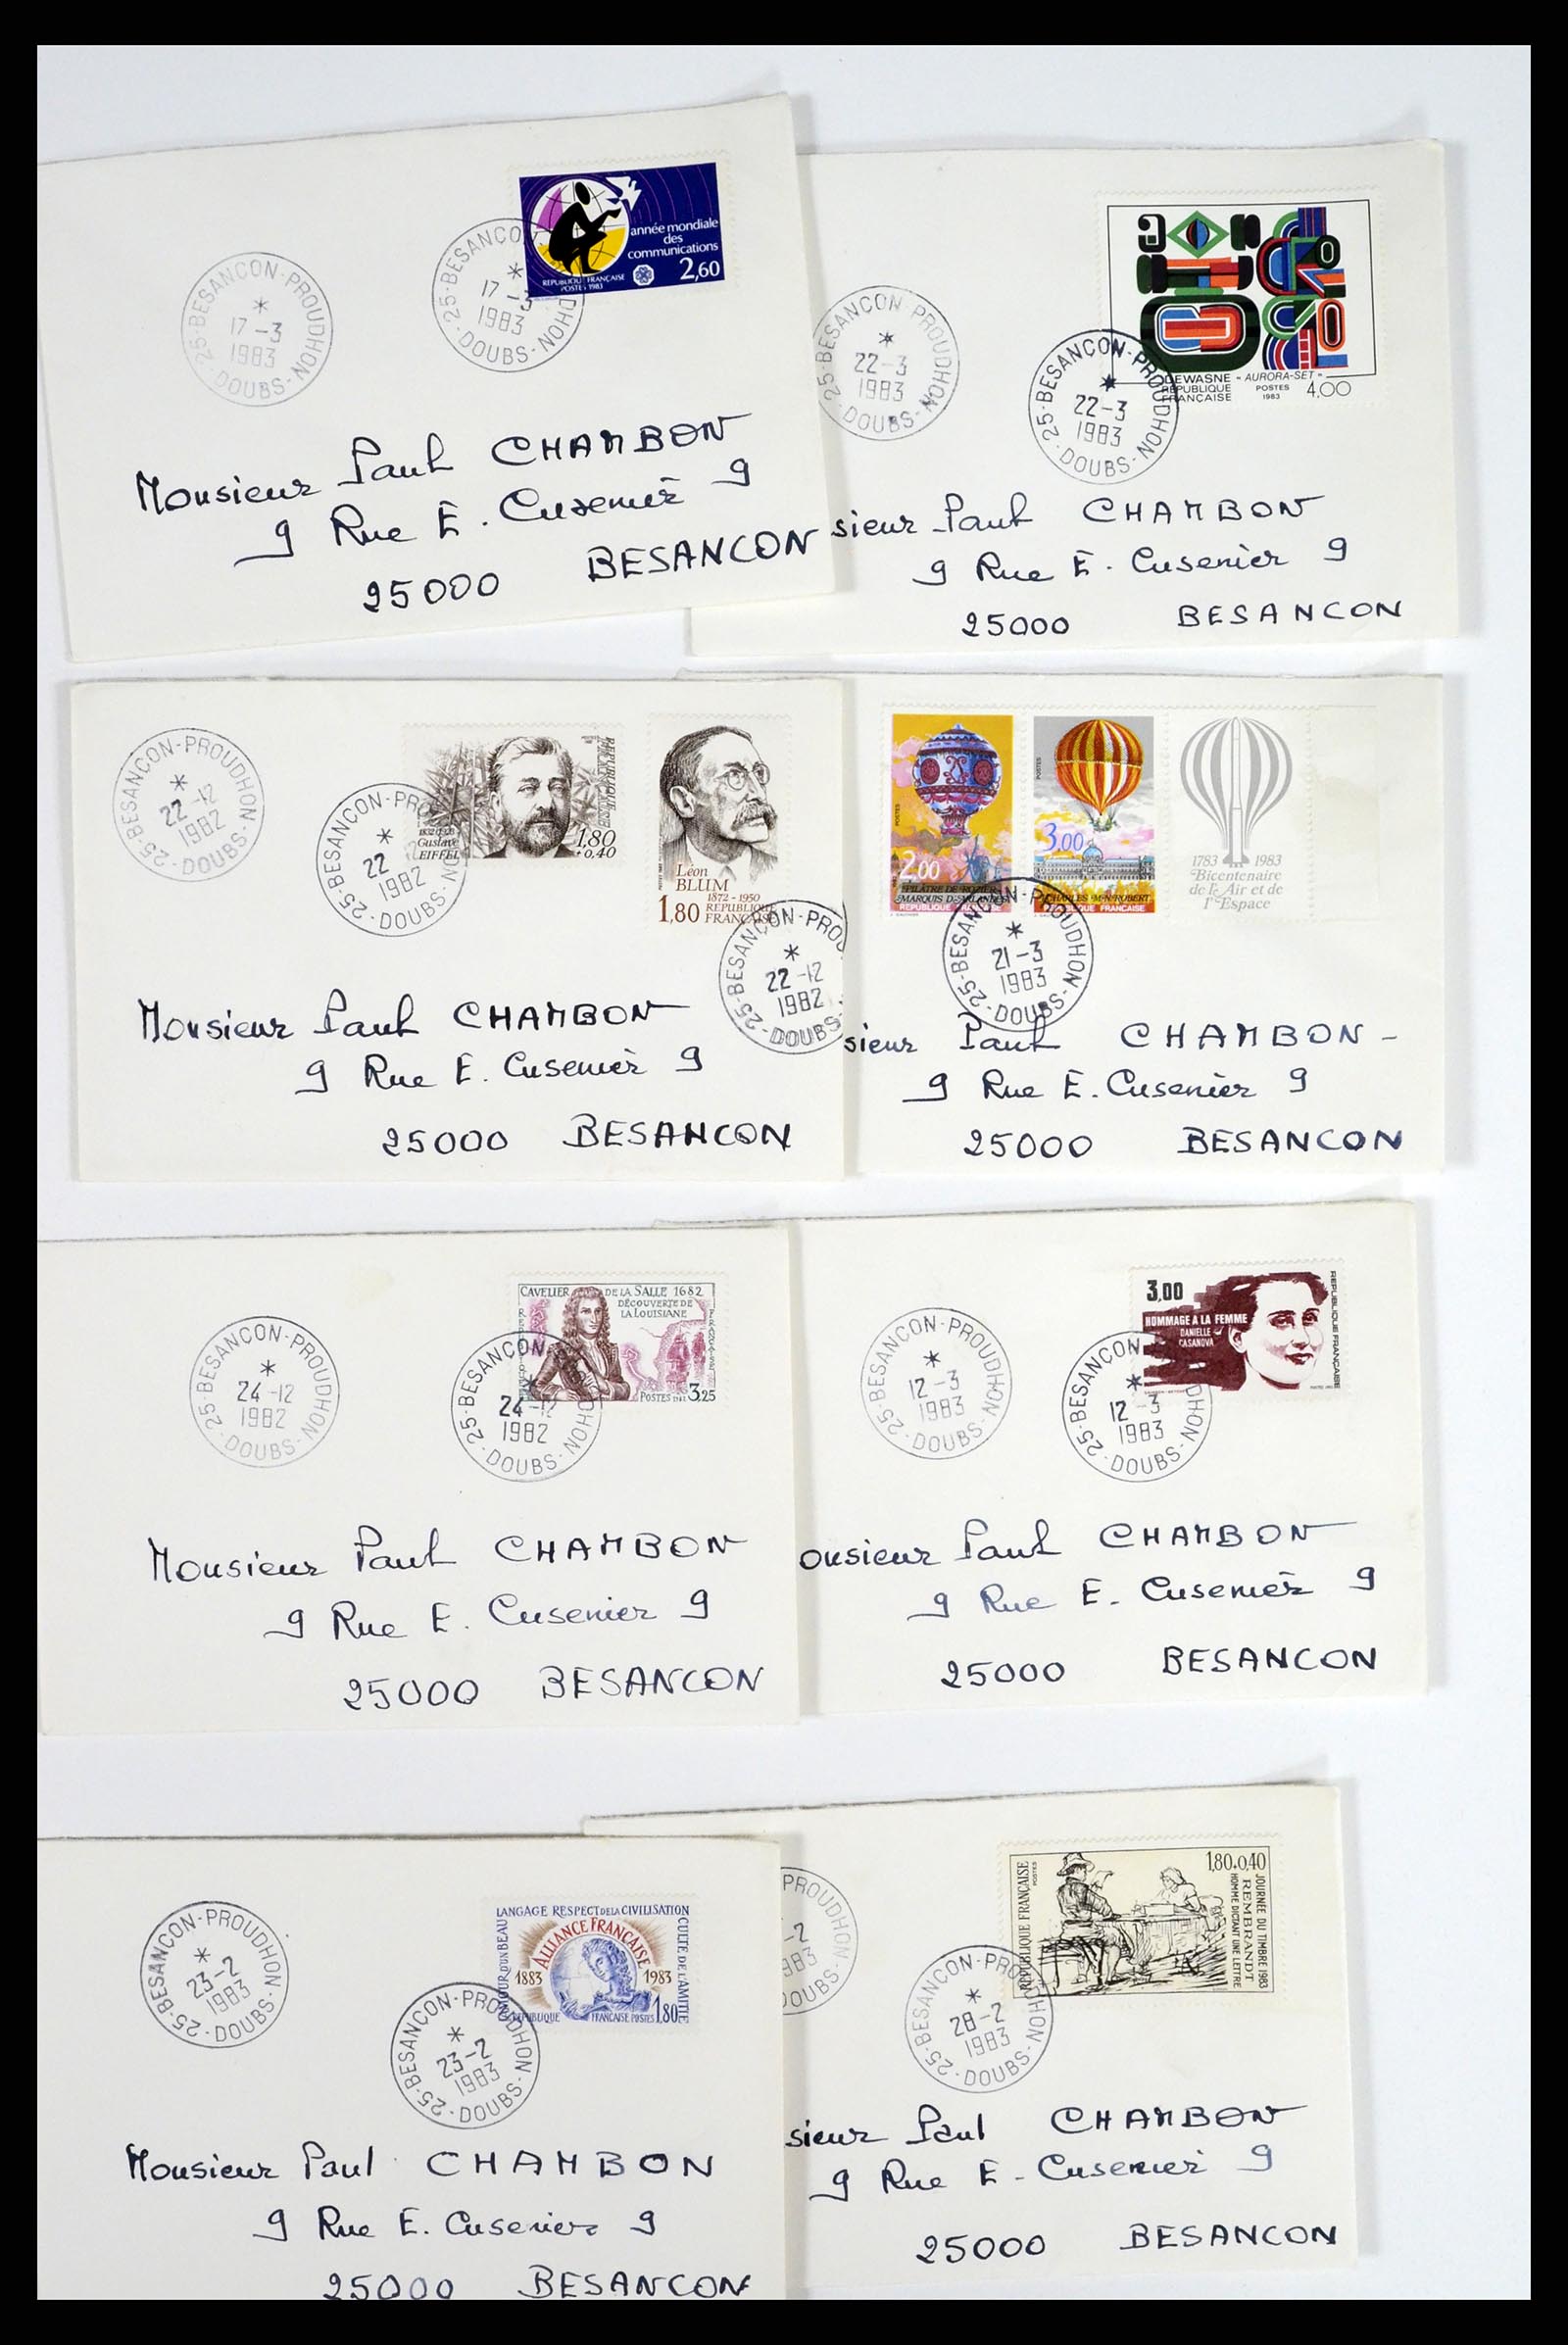 25-BESANCON-PROUDHON
17-3
1983
DOUBS
25-BESANCON
17-3
1983
DOUBS-NOHD
année mondiale
des
communications
2,60
REPUBLIQUE FRANÇAISE
POSTES 1983
Monsieur Paul CHAMBON
9 Rue E. Cusenier 9
25000 BESANCON
25-BESANCON-PROUDHON
22-3
1983
DOUBS
25-BESANCON-PROUDHON
22-3
1983
DOUBS
DEWASNE "AURORA-SET"
RÉPUBLIQUE
FRANÇAISE
POSTES
1983
4,00
sieur Paul CHAMBON
9 Rue E. Cusenier 9
25000 BESANCON
25-BESANCON-PROUDHON
22-12
1982
DOUBS
25-BESANCON-PRO
22
1982
DOUBS
REPUBLIQUE
FRANÇAISE
Gustave
EIFFEL
1,80
+0,40
Léon
BLUM
1872-1950
1,80 REPUBLIQUE
FRANÇAISE
25-BESANCON-PROU
22-12
1982
DOUBS
Monsieur Paul CHAMBON
9 Rue E. Cusenier 9
25000 BESANCON
POSTES
2,00
PILÂTRE DE ROZIER
MARQUIS D'ARLANDES
REPUBLIQUE
POSTES
3,00
CHARLES M.N. ROBERT
FRANÇAISE
1783 1983
Bicentenaire
de l'Air et de
l'Espace
25-BESANCON-PROUDHON
21-3
1983
DOUBS
sieur Paul CHAMBON-
9 Rue E. Cusenier 9
25000 BESANCON
25-BESANCON-PROUDHON
24-12
1982
DOUBS
25-BESANCON
24-12
1982
DOUBS
CAVELIER DE LA SALLE 1682
DÉCOUVERTE DE
LA LOUISIANE
POSTES 3,25
Monsieur Paul CHAMBON
9 Rue E. Cusenier 9
25000 BESANCON
25-BESANCON-PROUDHON
12-3
1983
DOUBS
25-BESANCON
12-3
1983
DOUBS
3,00
HOMMAGE A LA FEMME
DANIELLE
CASANOVA
REPUBLIQUE FRANÇAISE
onsieur Paul CHAMBON
9 Rue E. Cusenier 9
25000 BESANCON
25-BESANCON-PROUDHON
23-2
1983
DOUBS
25-BESANCON-PROUDHON
23-2
1983
DOUBS
AMOUR D'UN BEAU
LANGAGE RESPECT DE LA CIVILISATION
CULTE DE L'AMITIÉ
ALLIANCE FRANÇAISE
1883 1983
REPUBLIQUE FRANÇAISE POSTES 1,80
Monsieur Paul CHAMBON
9 Rue E. Cusenier 9
25000 BESANCON
PROUDHON
-2
983
DOUBS
25-BESANCON-PROUDHON
28-2
1983
DOUBS
REPUBLIQUE FRANÇAISE
POSTES
1,80+0,40
JOURNÉE DU TIMBRE 1983
REMBRANDT
HOMME DICTANT UNE LETTRE
sieur Paul CHAMBON
9 Rue E. Cusenier 9
25000 BESANCON